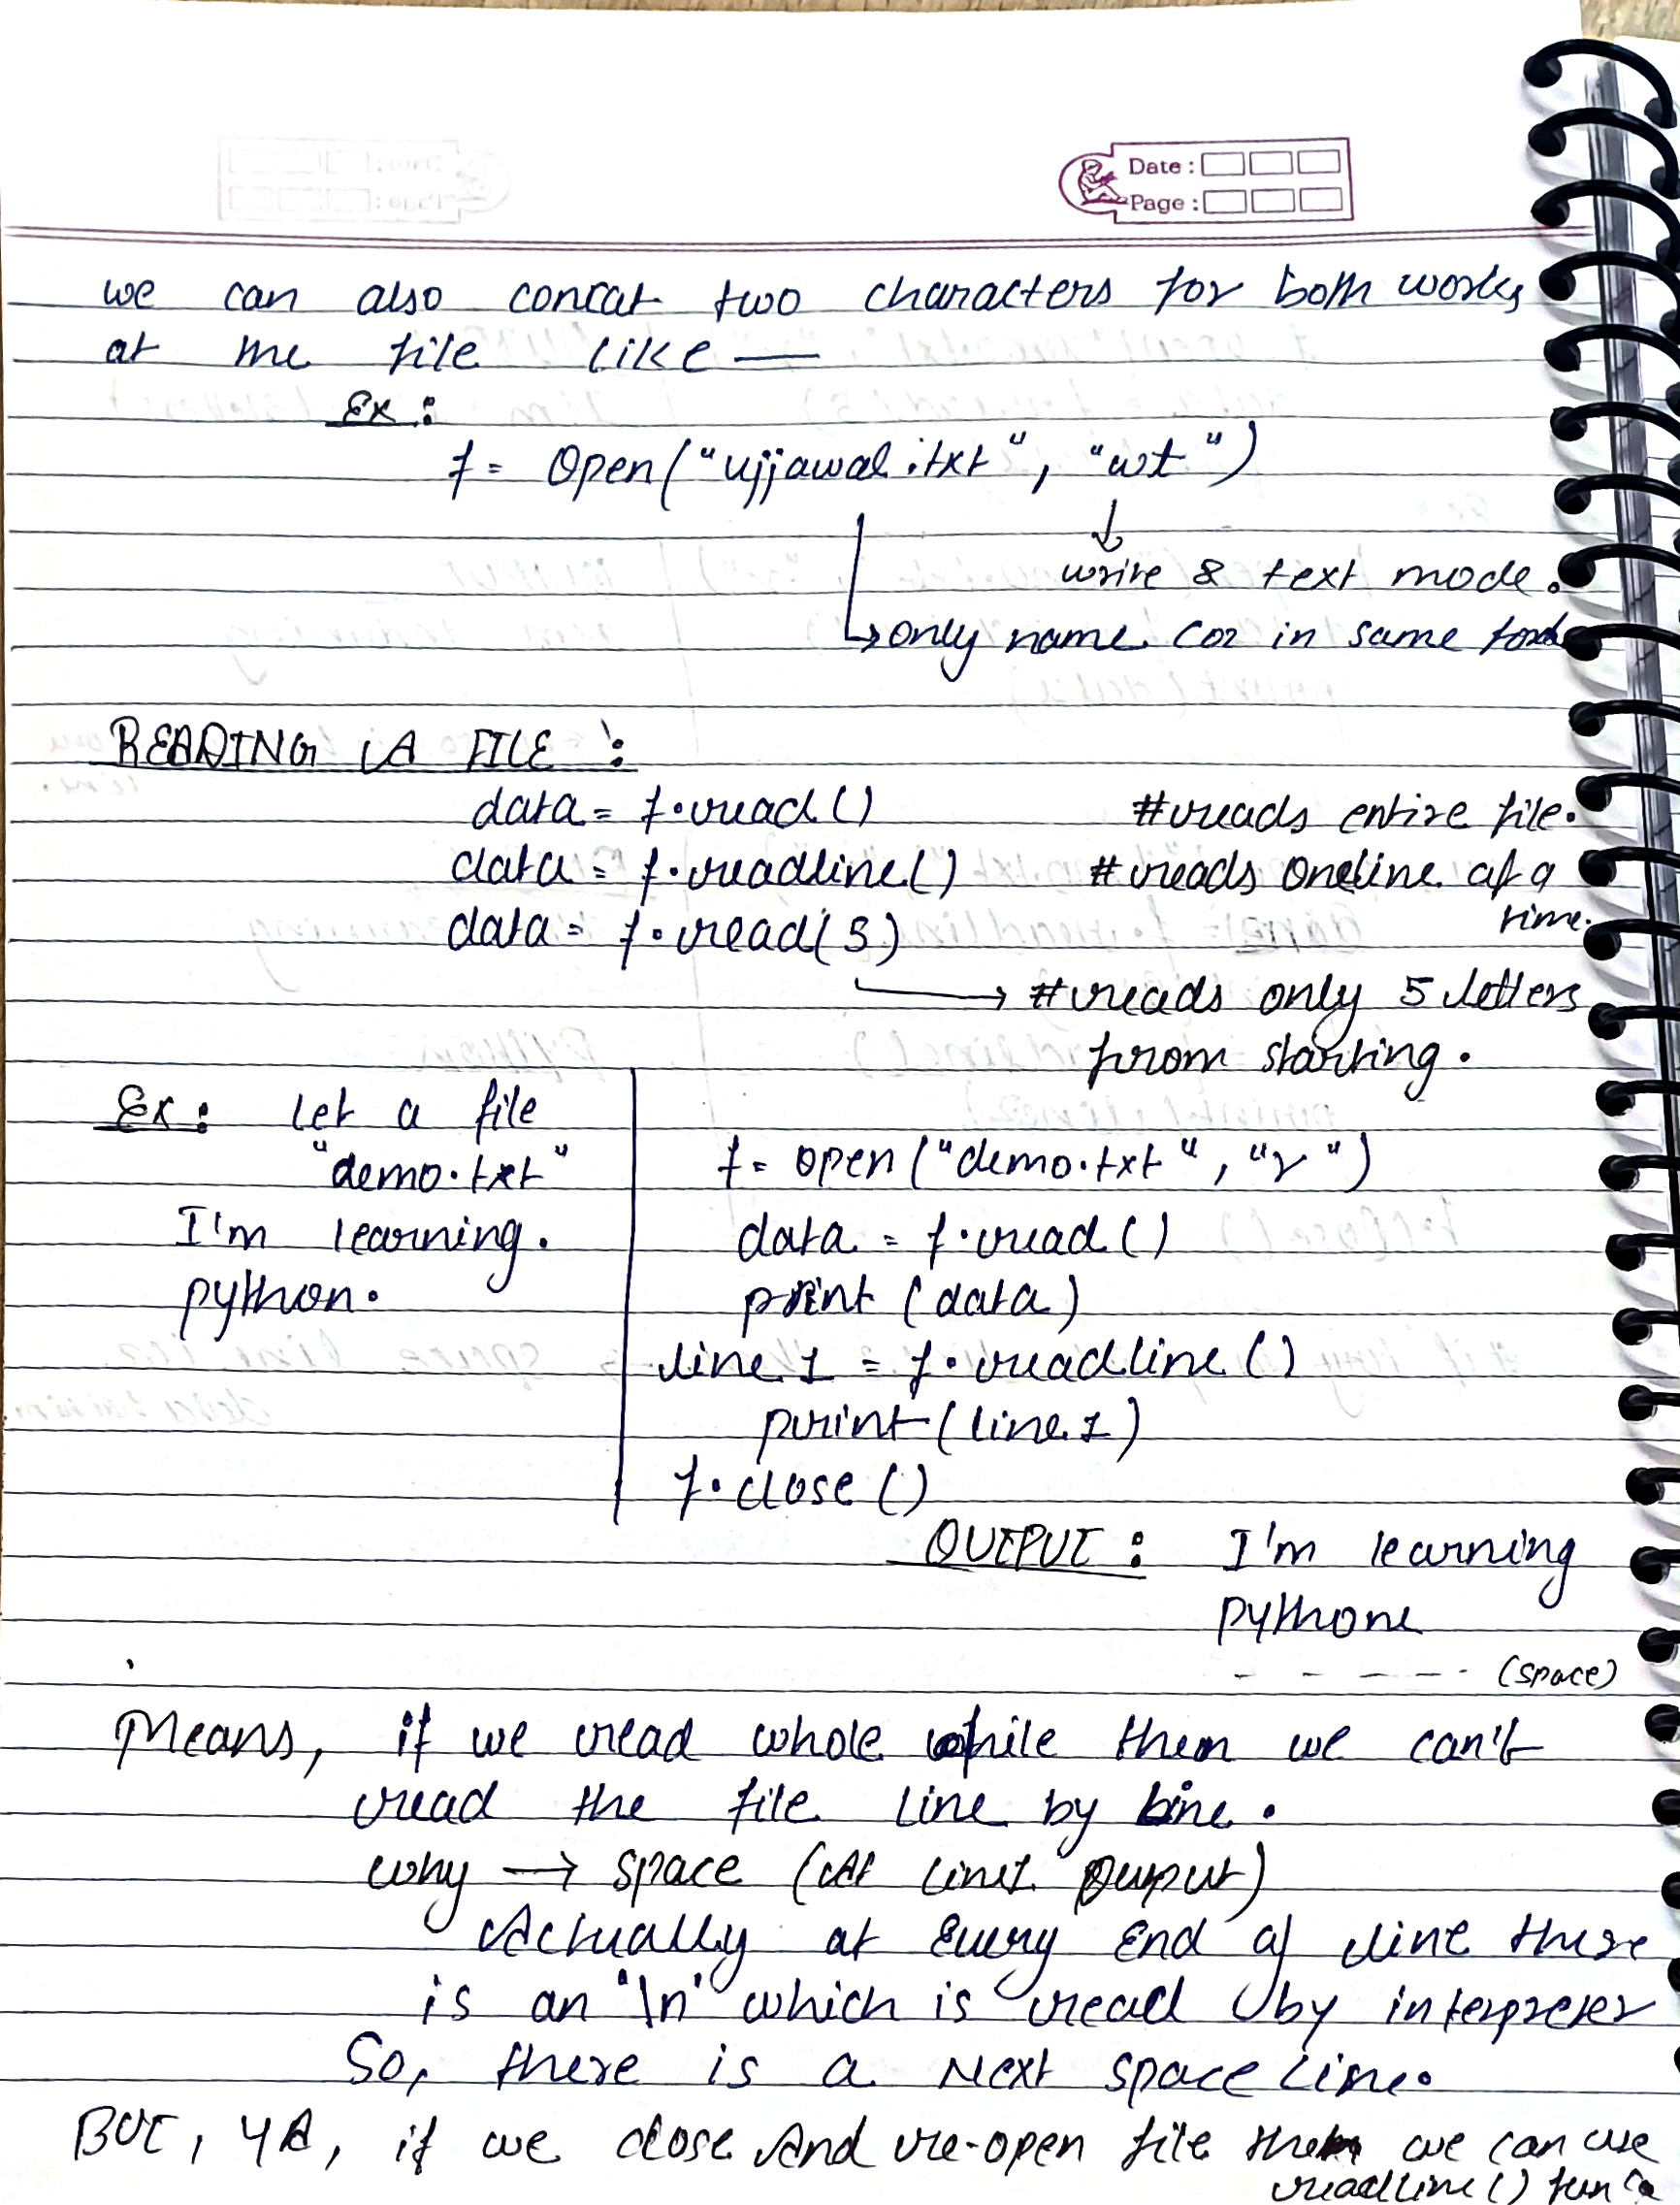 Date :
Page :
we can also concat two characters for both works
at the file like —
Ex :
f = Open("ujjawal.txt", "wt")
↓
write & text mode.
→ only name coz in same
READING A FILE :
data = f.read()	#reads entire file.
data = f.readline()	#reads one line at a
time.
data = f.read(5)
→ #reads only 5 letters
from starting.
Ex : Let a file
"demo.txt"
I'm learning.
python.
f = open("demo.txt", "r")
data = f.read()
print(data)
line1 = f.readline()
print(line1)
f.close()
OUTPUT : I'm learning
pythone
- - - - - - (space)
Means, if we read whole file then we can't
read the file line by line.
why → space (At line1 Output)
Actually at Every End of line there
is an '\n' which is read by interpreter
So, there is a Next space Line.
BUT, YA, if we close And re-open file then we can use
readline()